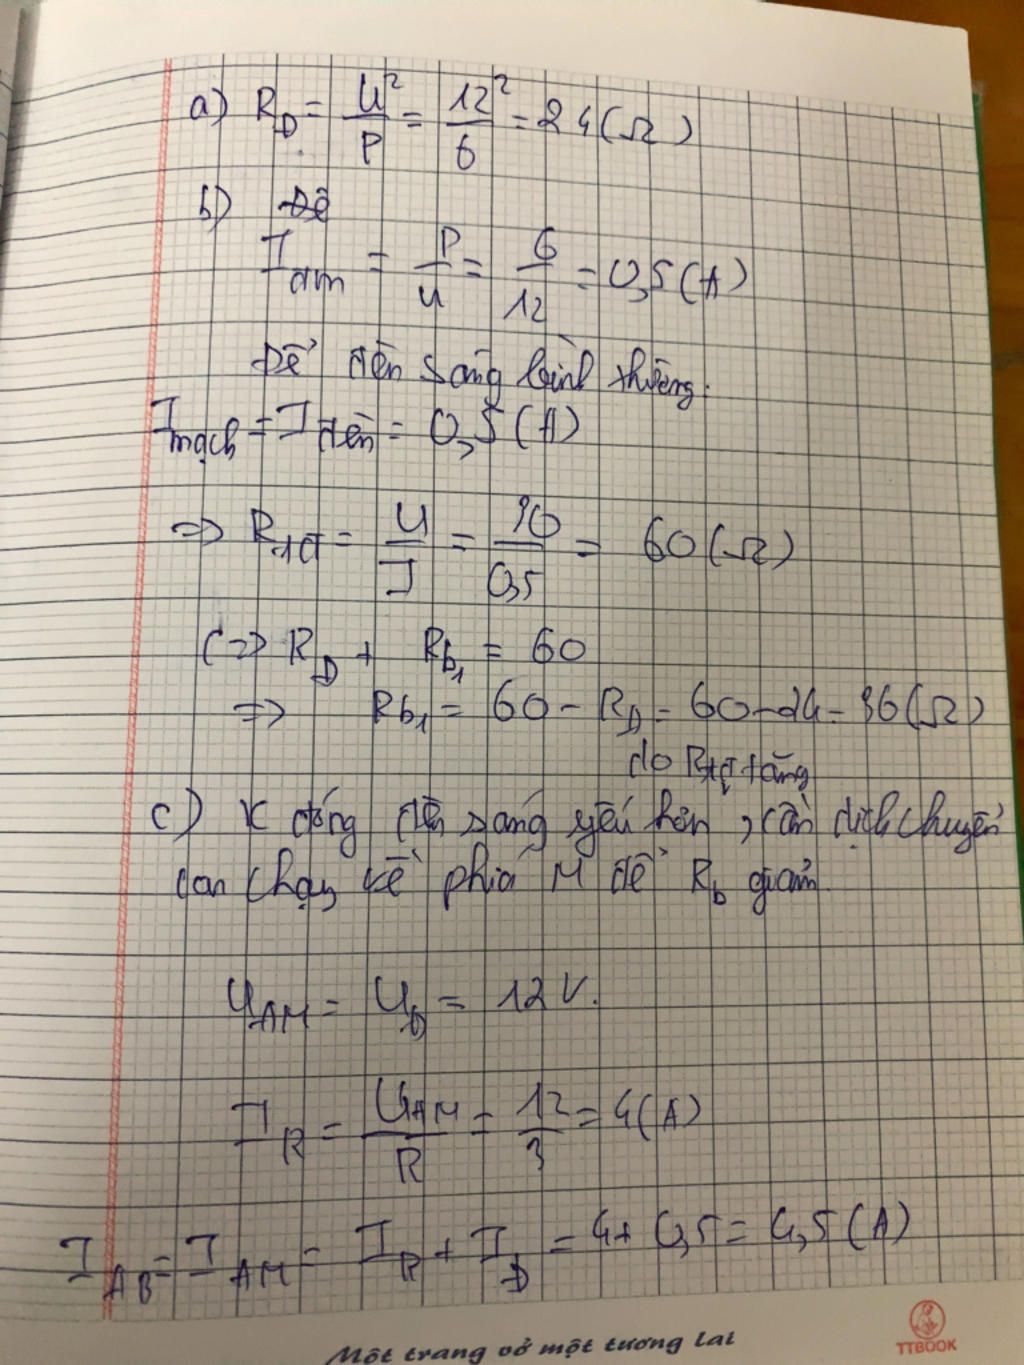 a) R_Đ = U²/P = 12²/6 = 24 (Ω)
b) Để
I_đm = P/U = 6/12 = 0,5 (A)
Để đèn sáng bình thường:
I_mạch = I_đèn = 0,5 (A)
=> R_tđ = U/I = 30/0,5 = 60 (Ω)
(=> R_Đ + R_b1 = 60
=> R_b1 = 60 - R_Đ = 60 - 24 = 36 (Ω)
do R_tđ tăng
c) K đóng đèn sáng yếu hơn, cần dịch chuyển
con chạy về phía M để R_b giảm.
U_AM = U_Đ = 12 V.
I_R = U_AM/R = 12/3 = 4 (A)
I_AB = I_AM = I_R + I_Đ = 4 + 0,5 = 4,5 (A)
Một trang vở một tương lai
TTBOOK